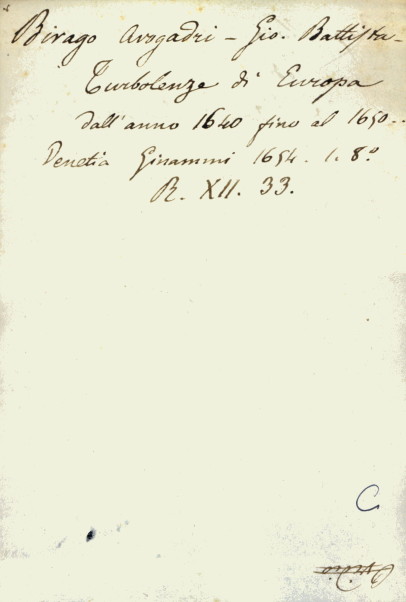 Birago Avogadri - Gio. Battista -
Turbolenze di Europa
dall'anno 1640 fino al 1650 -
Venetia Ginammi 1654. 1. 8.°
R. XII. 33.
C